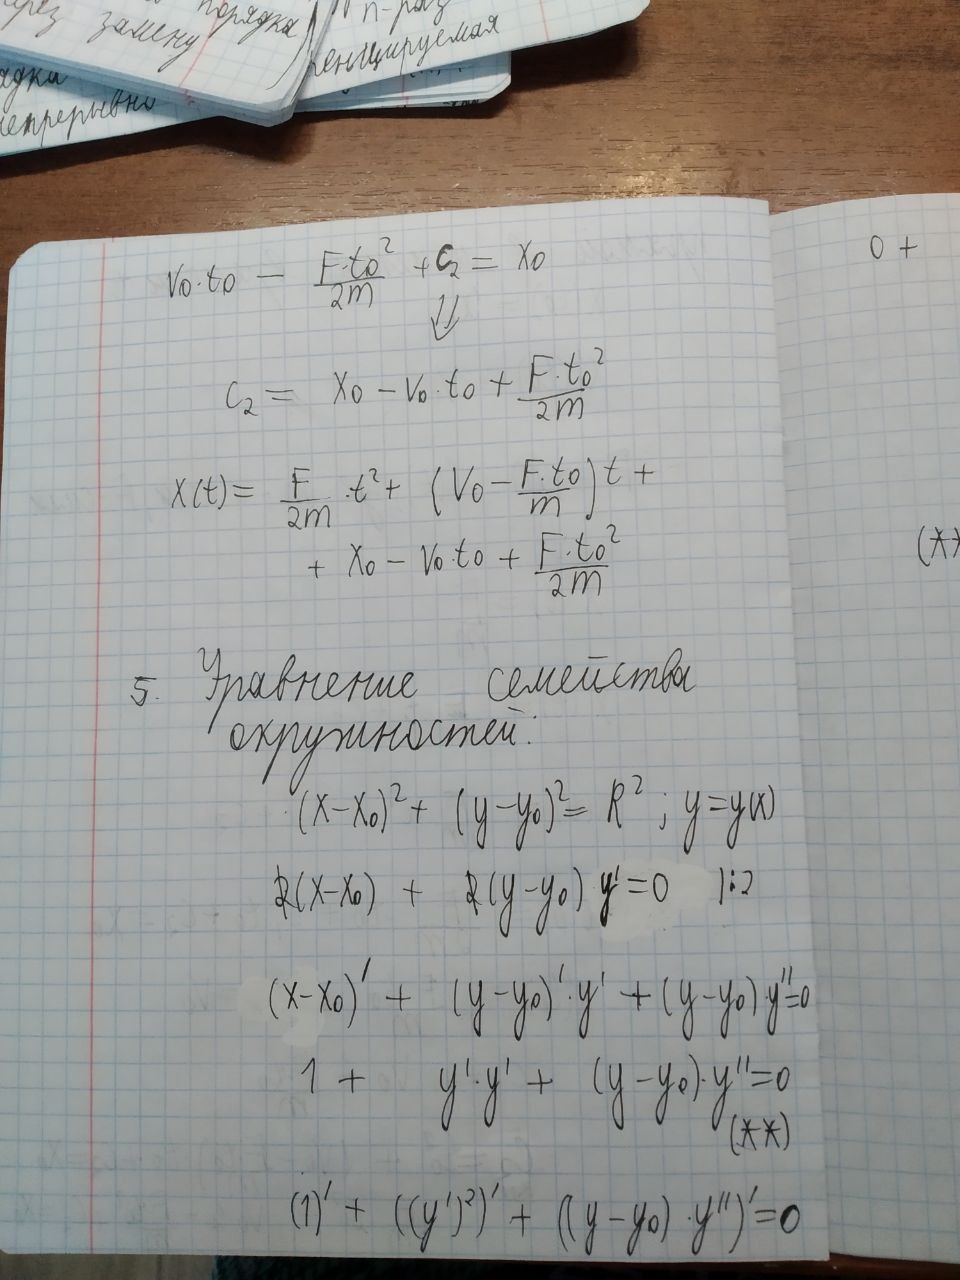 порядка
замену
n-раз
непрерывно
V₀·t₀ − F·t₀²/2m + C₂ = X₀
⇓
C₂ = X₀ − V₀·t₀ + F·t₀²/2m
X(t) = F/2m ·t² + (V₀ − F·t₀/m)t +
+ X₀ − V₀·t₀ + F·t₀²/2m
5. Уравнение семейства
окружностей:
(x−x₀)² + (y−y₀)² = R² ; y=y(x)
2(x−x₀) + 2(y−y₀) y' = 0 |:2
(x−x₀)' + (y−y₀)'·y' + (y−y₀) y''=0
1 + y'·y' + (y−y₀)·y''=0
(**)
(1)' + ((y')²)' + ((y−y₀)·y'')'=0
0 +
(**